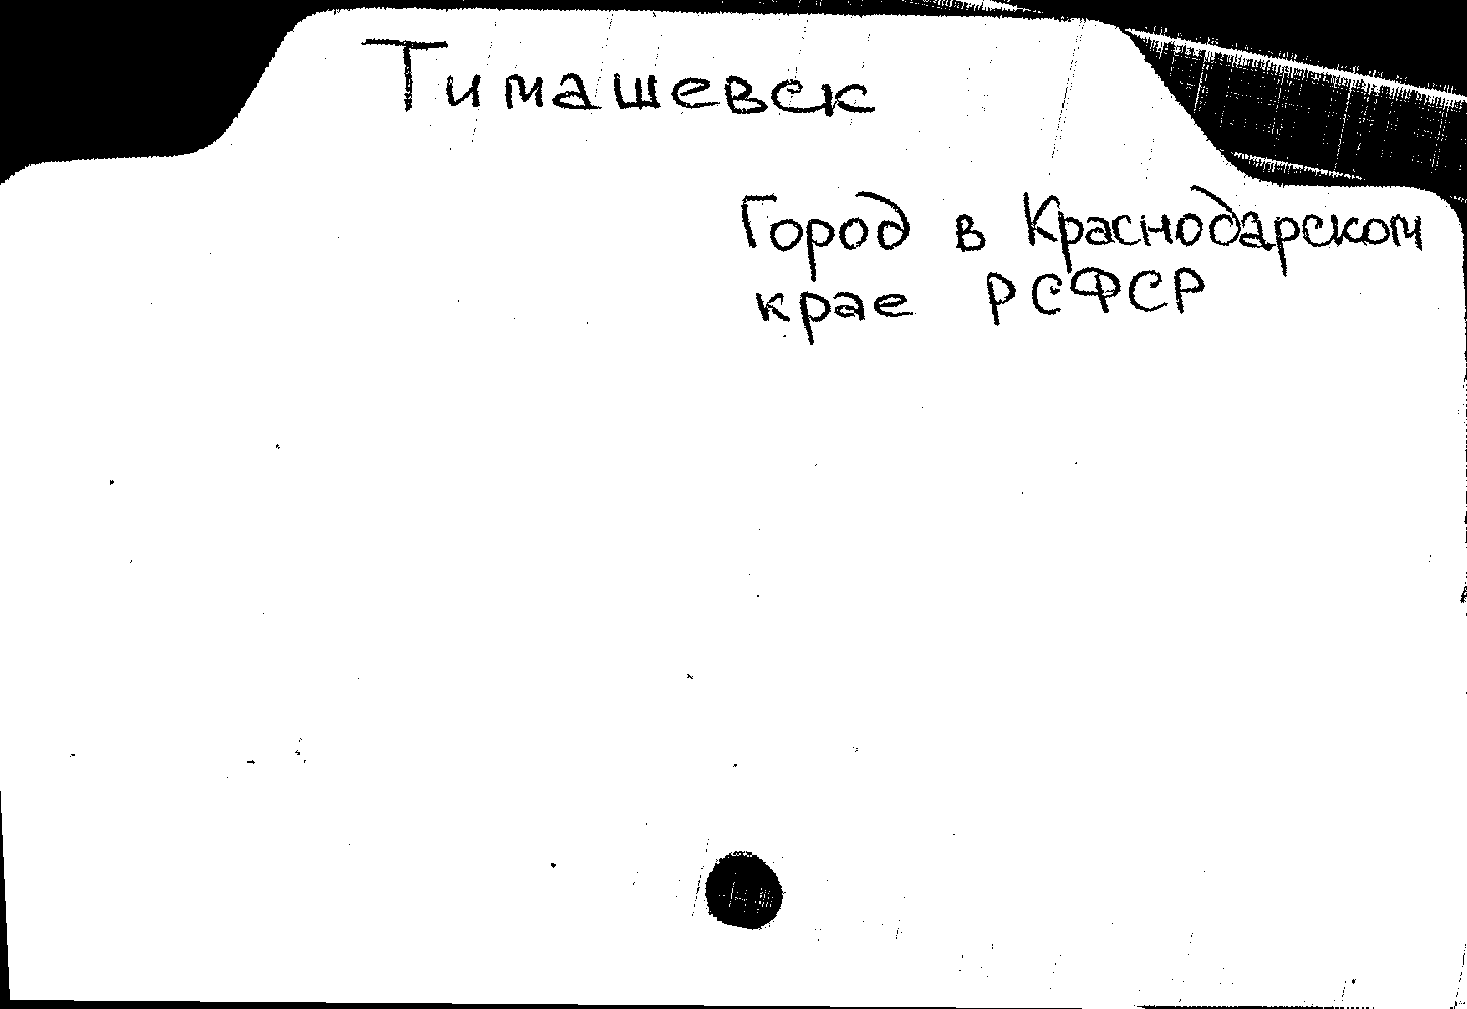 Тимашевск
Город в Краснодарском
крае РСФСР